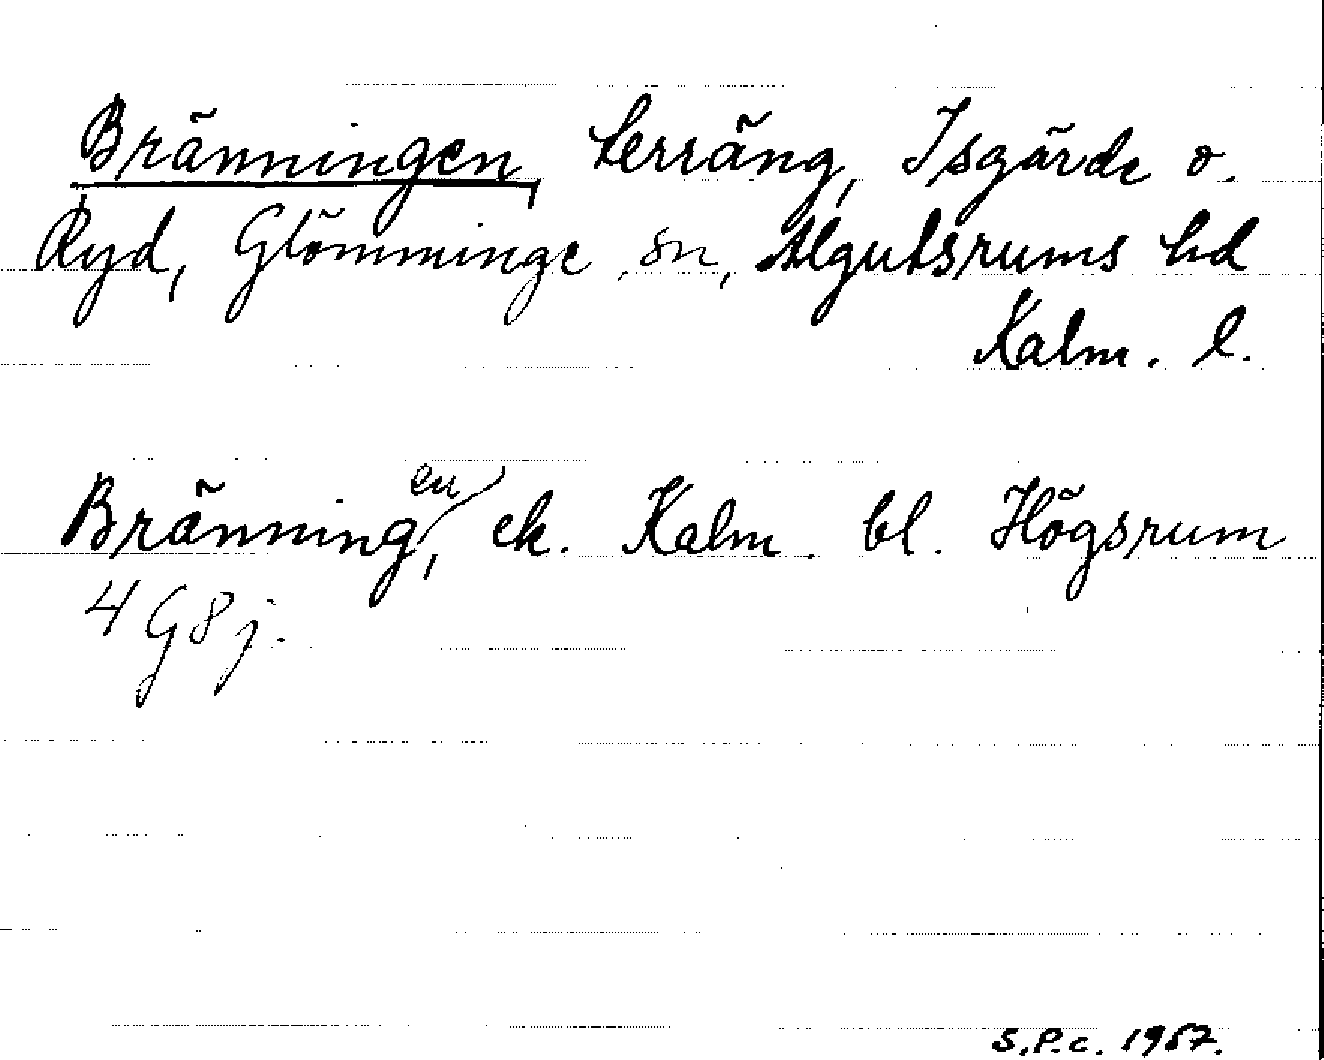 Bränningen, terräng, Isgärde o.
Ryd, Glömminge sn, Algutsrums hd
Kalm. l.
Bränningen, ek. Kalm. bl. Högsrum
4 G 8 j.
S.P.C. 1957.